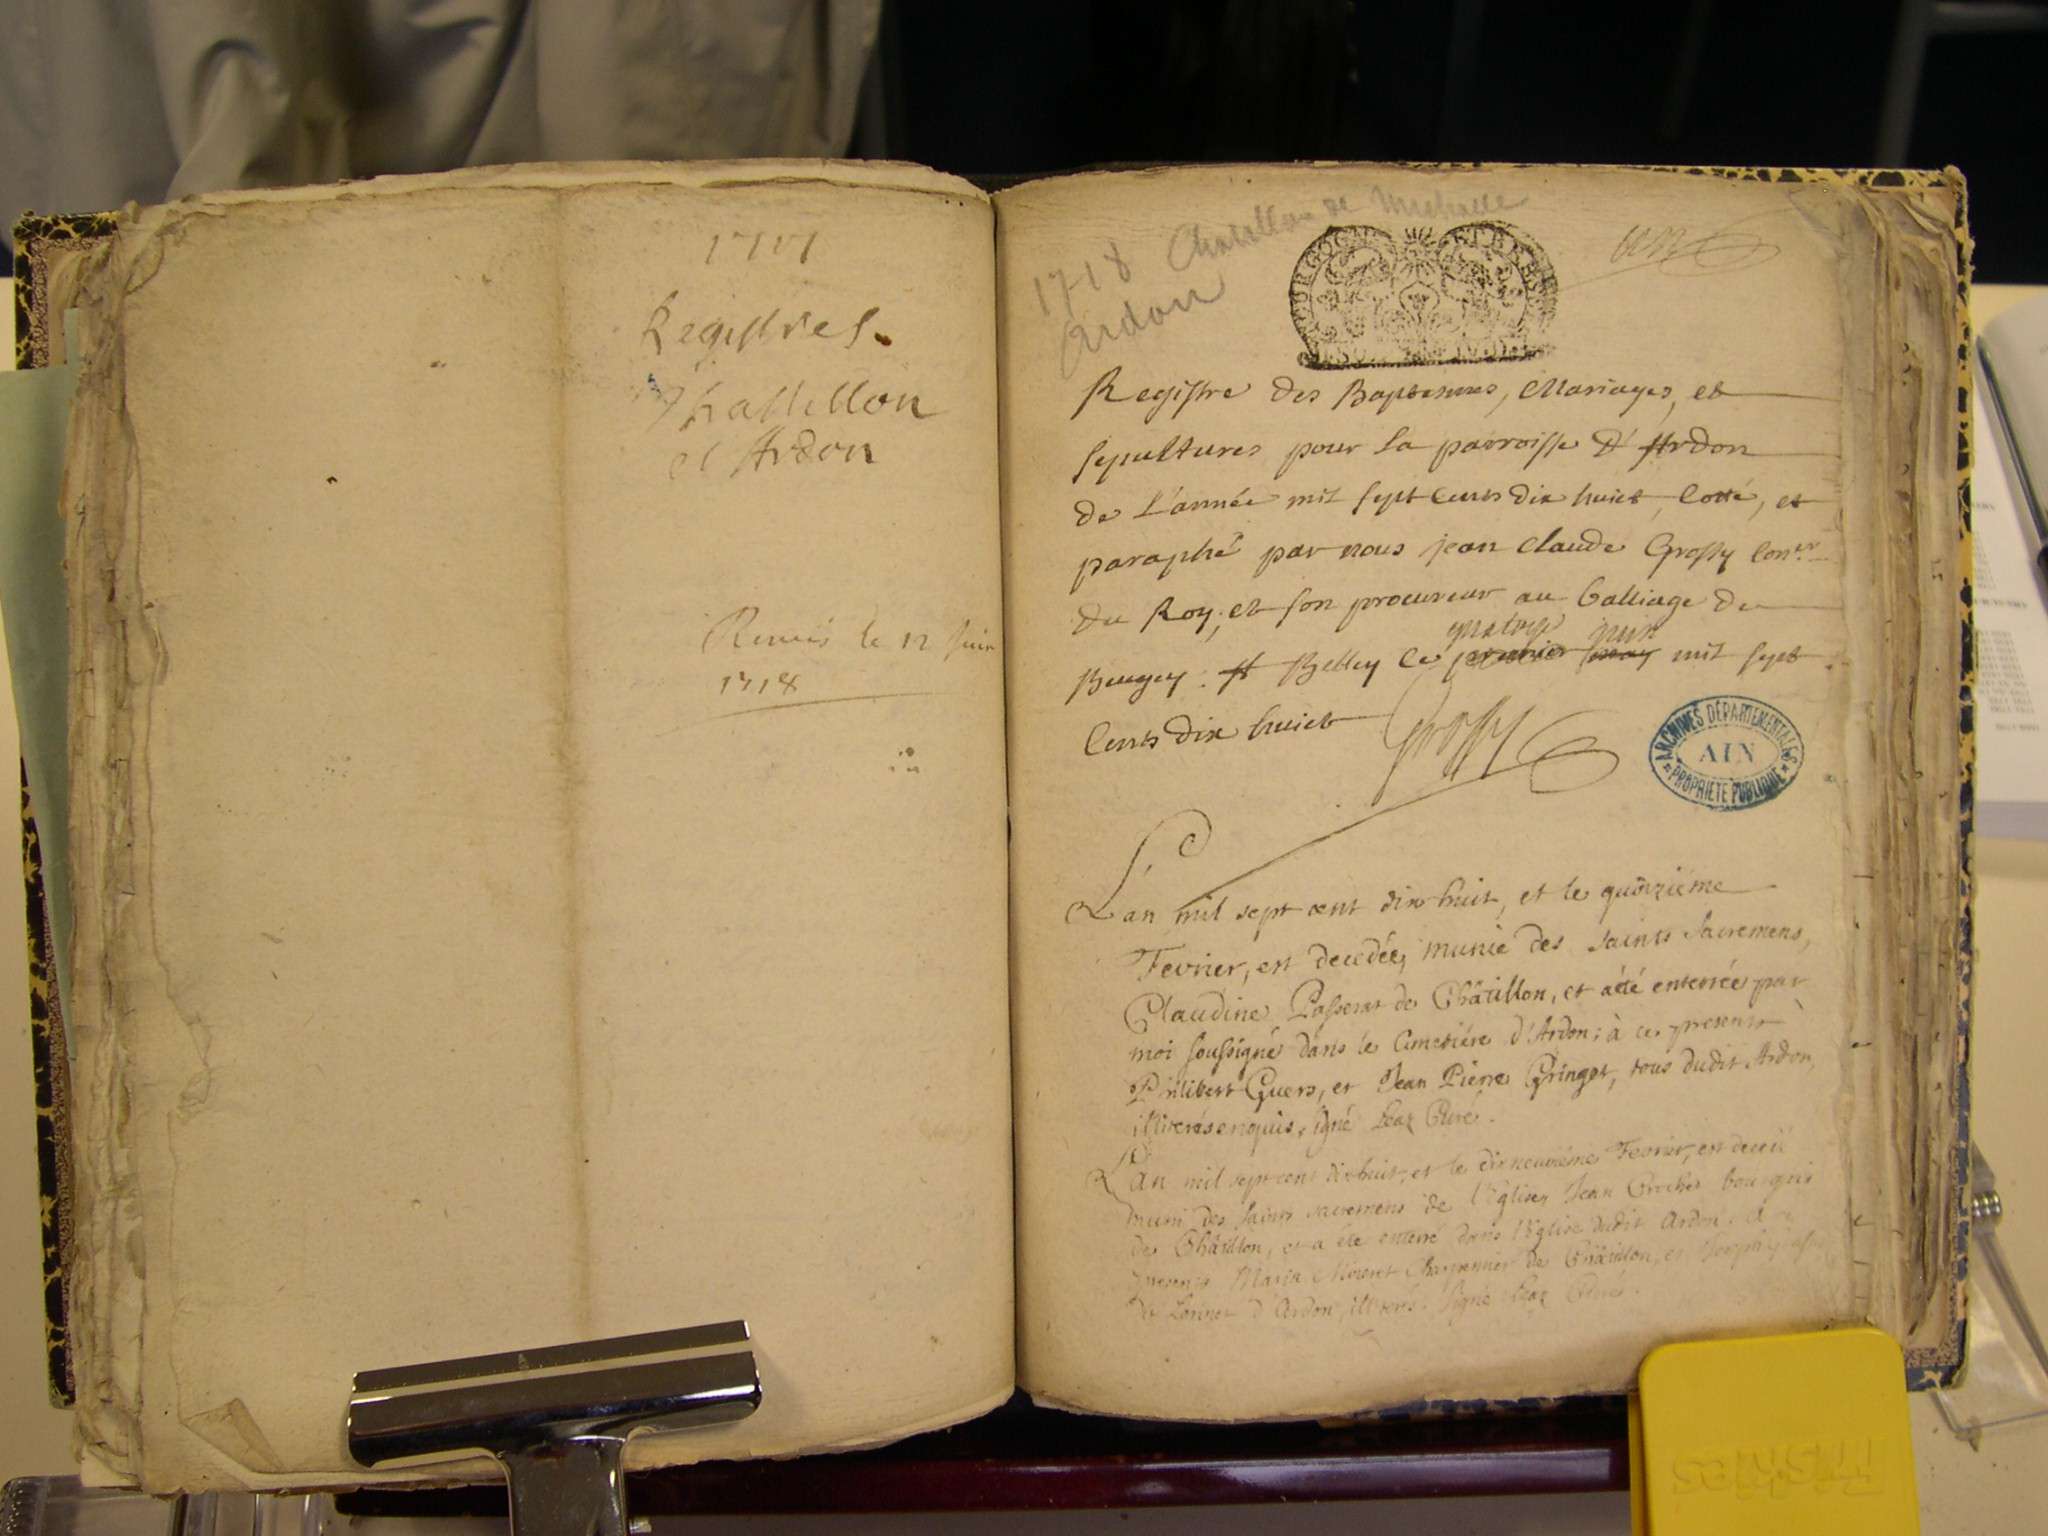 1717
Registres
Chastillon
et Ardon
Remis le 12 Juin
1718
1718 Chatillon de Michaille
Ardon
BOURGOGNE ET BRESSE
Registre des Baptesmes, Mariages, et
sepultures pour la parroisse d'Ardon
de l'année mil sept cents dix huict, cotté, et
paraphé par nous jean claude Grossy con.er
du Roy, et son procureur au balliage de
Beugey. A Belley le quatorze juin mil sept
cents dix huict Grossy
ARCHIVES DÉPARTEMENTALES
AIN
PROPRIÉTÉ PUBLIQUE
L'an mil sept cent dix huit, et le quinziéme
Fevrier, est decedée, munie des saints sacremens,
Claudine Passerat de Châtillon, et a été enterrée par
moi soussigné dans le Cimetiére d'Ardon; à ce presents
Philibert Guers, et Jean Pierre Gringet, tous dudit Ardon,
illiterés enquis, signé Leaz Curé.
L'an mil sept cent dix huit, et le dixneuviéme Fevrier, est decedé
muni des saints sacremens de l'Eglise, Jean Crochet bourgois
de Châtillon, et a été enterré dans l'Eglise dudit Ardon. A ce
presents Maria Charpentier de Châtillon, et
d'Ardon, illiterés. Signé Leaz Curé.